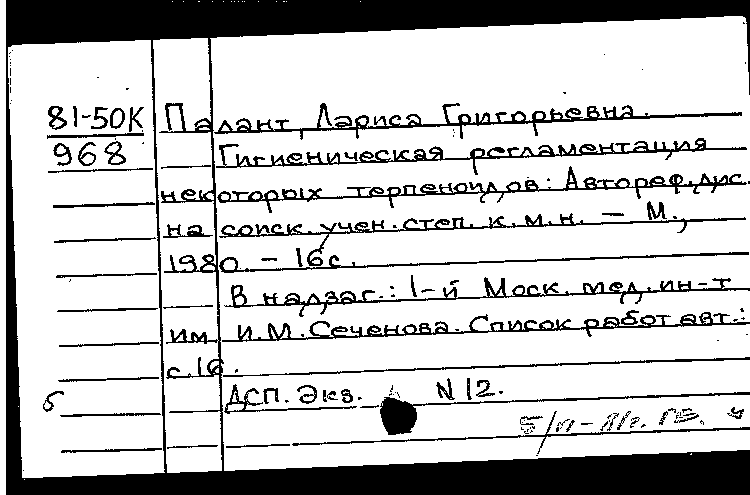 81-50К Палант, Лариса Григорьевна.
968 Гигиеническая регламентация
некоторых терпеноидов: Автореф. дис.
на соиск. учен. степ. к. м. н. – М.,
1980. – 16 с.
В надзаг.: 1-й Моск. мед. ин-т
им. И.М. Сеченова. Список работ авт.:
с. 16.
б ДСП. Экз. N 12.